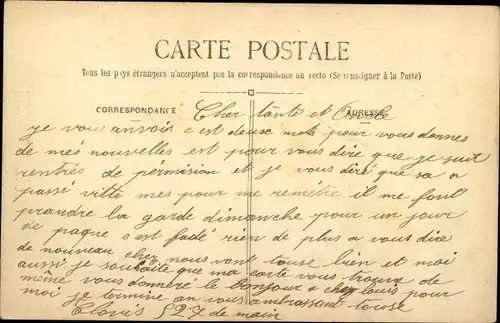 CARTE POSTALE
Tous les pays étrangers n'acceptent pas la correspondance au recto (Se renseigner à la Poste)
CORRESPONDANCE
ADRESSE
Cher tante et Oncle
je vous anvois c est deuse mots pour vous donnes
de meś nouvelles est pour vous dire que je suit
rentrés de pérmision et je vous diré que sa a
passé vitte mes pour me remétre il me font
prandre la garde dimanche pour un jour
de paque c est fadé rien de plus a vous dire
de nouveau chez nous vont touse bien et moi
aussi je souhaite que ma carte vous trouve de
même vous donneré le bonjour a chez louis pour
moi je termine an vous ambrassant touse
Clovis 527 de main